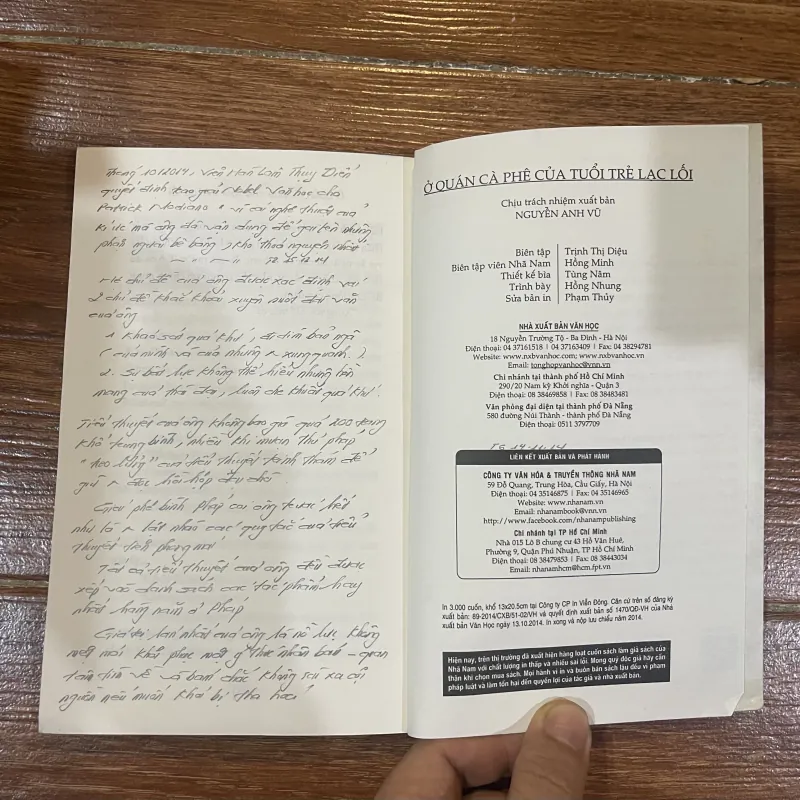 Tháng 10/2014, Viện Hàn Lâm Thụy Điển
quyết định trao giải Nobel Văn học cho
Patrick Modiano " vì cái nghệ thuật của
kí ức mà ông đã vận dụng để gợi lên những
phận người
chủ đề của ông được xác định với
2 chủ đề khắc khoải xuyên suốt
của ông
1 khảo sát quá khứ, đi tìm bản ngã
( của mình và của những xung quanh )
2. Sự bất lực không thể hiểu những
mang của thời đại, luôn che khuất quá khứ.
Tiểu thuyết của ông không bao giờ quá 200 trang
khổ trung bình, nhiều khi mượn thủ pháp
của tiểu thuyết trinh thám để
đọc hồi hộp
Giới phê bình Pháp coi ông trước hết
như là các quy tắc của tiểu
thuyết
Tất cả tiểu thuyết của ông đều được
xếp vào danh sách các tác phẩm hay
nhất hàng năm ở Pháp
Giá trị lớn nhất của ông là nỗ lực không
mệt mỏi
Ở QUÁN CÀ PHÊ CỦA TUỔI TRẺ LẠC LỐI
Chịu trách nhiệm xuất bản
NGUYỄN ANH VŨ
Biên tập Trịnh Thị Diệu
Biên tập viên Nhã Nam Hồng Minh
Thiết kế bìa Tùng Nâm
Trình bày Hồng Nhung
Sửa bản in Phạm Thủy
NHÀ XUẤT BẢN VĂN HỌC
18 Nguyễn Trường Tộ - Ba Đình - Hà Nội
Điện thoại: 04 37161518 | 04 37163409 | Fax: 04 38294781
Website: www.nxbvanhoc.com; www.nxbvanhoc.vn
Email: tonghopvanhoc@vnn.vn
Chi nhánh tại thành phố Hồ Chí Minh
290/20 Nam kỳ Khởi nghĩa - Quận 3
Điện thoại: 08 38469858 | Fax: 08 38483481
Văn phòng đại diện tại thành phố Đà Nẵng
580 đường Núi Thành - thành phố Đà Nẵng
Điện thoại: 0511 3797709
T6 14-11-14
LIÊN KẾT XUẤT BẢN VÀ PHÁT HÀNH
CÔNG TY VĂN HÓA & TRUYỀN THÔNG NHÃ NAM
59 Đỗ Quang, Trung Hòa, Cầu Giấy, Hà Nội
Điện thoại: 04 35146875 | Fax: 04 35146965
Website: www.nhanam.vn
Email: nhanambook@vnn.vn
http://www.facebook.com/nhanampublishing
Chi nhánh tại TP Hồ Chí Minh
Nhà 015 Lô B chung cư 43 Hồ Văn Huê,
Phường 9, Quận Phú Nhuận, TP Hồ Chí Minh
Điện thoại: 08 38479853 | Fax: 08 38443034
Email: nhanamhcm@hcm.fpt.vn
In 3.000 cuốn, khổ 13x20.5cm tại Công ty CP In Viễn Đông. Căn cứ trên số đăng ký
xuất bản: 69-2014/CXB/51-02/VH và quyết định xuất bản số 1470/QĐ-VH của Nhà
xuất bản Văn Học ngày 13.10.2014. In xong và nộp lưu chiểu năm 2014.
Hiện nay, trên thị trường đã xuất hiện hàng loạt cuốn sách làm giả sách của
Nhã Nam với chất lượng in thấp và nhiều sai lỗi. Mong quý độc giả hãy cẩn
thận khi chọn mua sách. Mọi hành vi in và buôn bán sách lậu đều vi phạm
pháp luật và làm tổn hại đến quyền lợi của tác giả và nhà xuất bản.